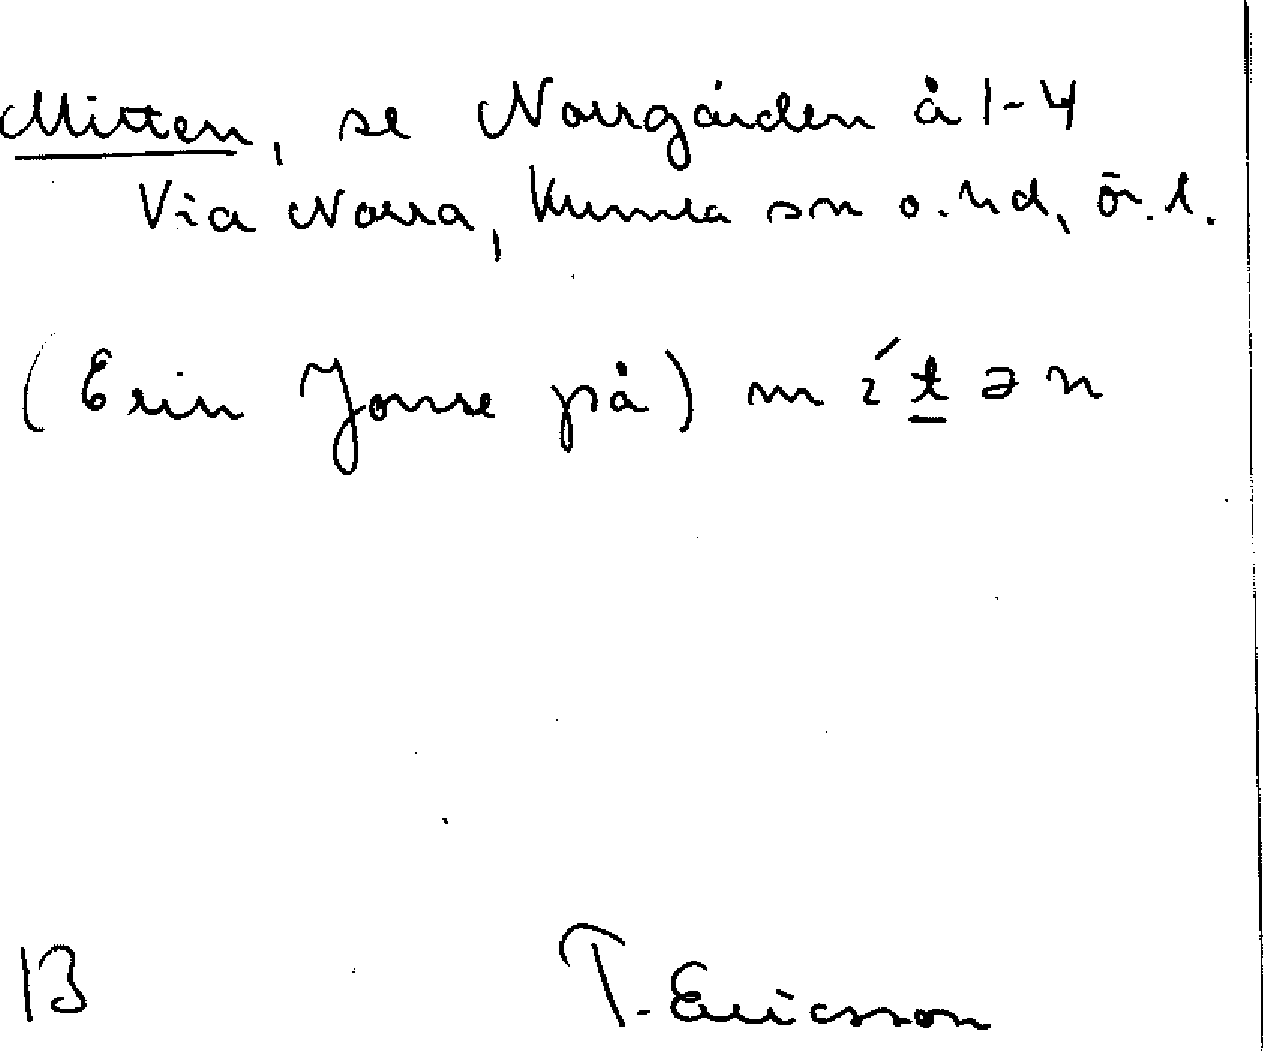 Mitten, se Norrgården å 1-4
Via Norra, Kumla sn o. hd, ör. l.
(Erin Jonse på) m ɩ́ t̲ ə n
B T. Ericsson